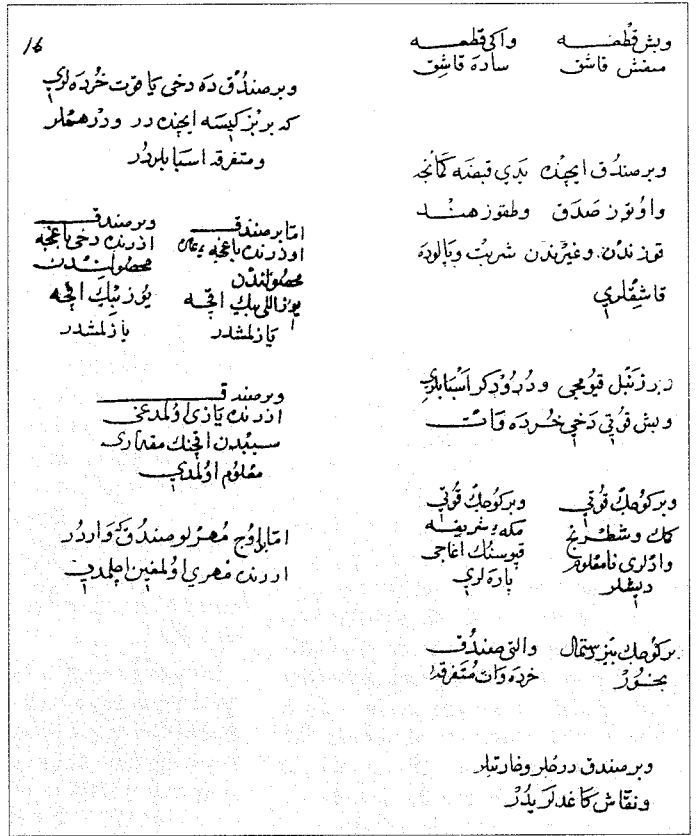 وبش قطعه
منقش قاشق
واكی قطعه
ساده قاشق
وبر صندق ایچنده یدی قبضه كمانچه
واوتوز صدق وطقوز هند
قوزندن وغیرندن شربت وپالوده
قاشقلری
وبر زنبل قیومجی ودرودكر اسبابلری
وبش قوتی دخی خرده وات
وبر كوچك قوتی
كمك وشطرنج
وادلری نامعلوم
دیشلر
وبر كوچك قوتی
مكه شریفه
قپوسنك اغاجی
پاره لری
بر كوچك بیز رستمال
بخور
والتی صندق
خرده وات متفرقه
وبر صندق درجلر وخارتیلر
ونقاش كاغدلریدر
16
وبر صندق ده دخی یاقوت خرده لری
كه بر بز كیسه ایچنده در ودرهملر
ومتفرقه اسبابلردر
اما بر صندق
اوزرنده باغچه
محصولندن
یوز اللی بیك اقچه
یازلمشدر
وبر صندق
اوزرنده دخی باغچه
محصولندن
یوز بیك اقچه
یازلمشدر
وبر صندق
اوزرنده یازی اولمدغی
سببدن اقچنك مقداری
معلوم اولمدی
اما اوچ مهرلو صندق واردر
اوزرنده مهری اولمغین اچلمدی